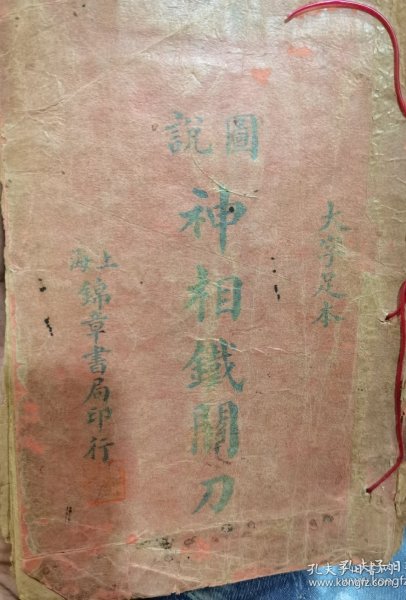 大字足本
圖說
神相鐵關刀
上海
錦章書局印行
孔夫子旧书网
www.kongfz.com